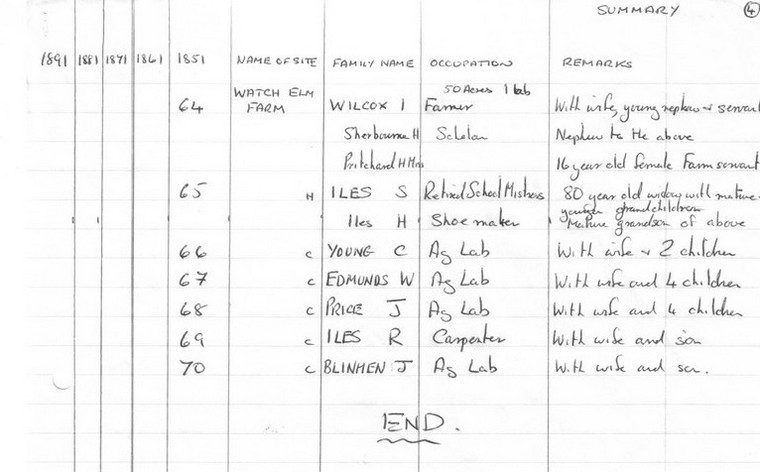 SUMMARY 4
1891 1881 1871 1861 1851 NAME OF SITE FAMILY NAME OCCUPATION REMARKS
50 Acres 1 lab
64 WATCH ELM FARM WILCOX I Farmer With wife, young nephew + servant
Sherbourne H Scholar Nephew to the above
Pritchard H Miss 16 year old female Farm servant
65 H ILES S Retired School Mistress 80 year old widow with mature
younger grandchildren
Iles H Shoemaker Mature grandson of above
66 c YOUNG C Ag Lab With wife + 2 children
67 c EDMUNDS W Ag Lab With wife and 4 children
68 c PRICE J Ag Lab With wife and 4 children
69 c ILES R Carpenter With wife and son
70 c BLINMEN J Ag Lab With wife and son.
END.